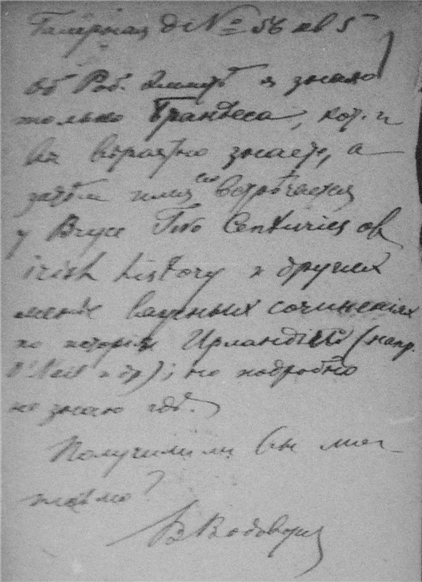 Галерная д № 56 кв 5
Об Роб. Эммутѣ я знаю
только Брандеса, кот. и
Вы вѣроятно знаете, а
затѣм имя его встрѣчается
у Bryce Two Centuries of
irish history и других
менѣе важных сочиненіях
по исторіи Ирландіи (напр.
O'Neil и др); но подробно
не знаю гдѣ.
Получили ли Вы мое
письмо?
В Водовозов